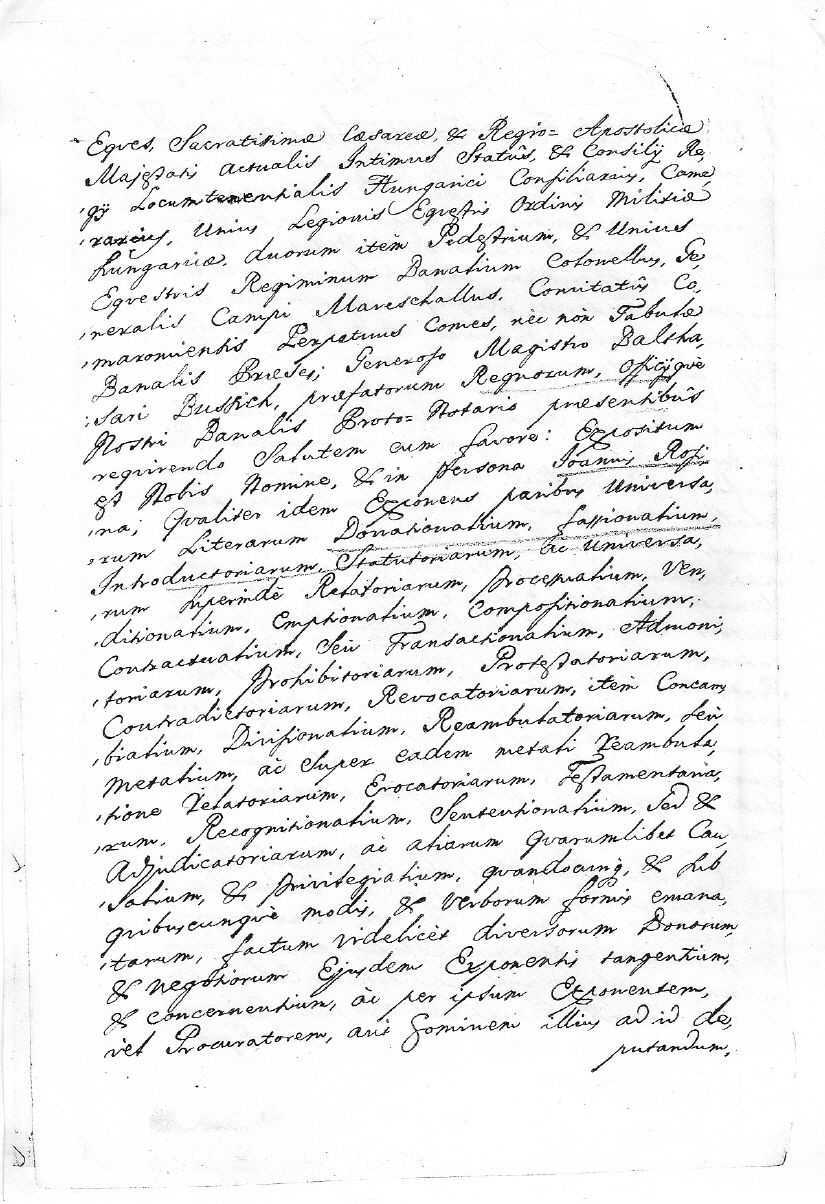 Eqves, Sacratissimæ Cæsareæ, & Regio= Apostolicæ
Majestatis actualis Intimus Statûs, & Consilij Re,
,gij Locumtenentialis Hungarici Consiliarius, Came,
,rarius, Unius Legionis Eqvestris Ordinis Militiæ
Hungaricæ, duorum itèm Pedestrium, & Unius
Eqvestris Regiminum Banalium Colonellus, Ge,
,neralis Campi Mareschallus, Comitatûs Co,
,maromiensis Perpetuus Comes, nèc nòn Tabulæ
Banalis Præses; Generoso Magistro Baltha,
,sari Bussich, præfatorum Regnorum, Officijqvè
Nostri Banalis Proto= Notario præsentibûs
requirendo Salutem cum favore: Expositum
est Nobis Nomine, & in Persona Joannis Rosi
,na; Qvaliter idem Exponens paribus Universa,
,rum Literarum Donationalium, fassionalium,
Introductoriarum, Statutoriarum, àc Universa,
,rum Siperindè Relatoriarum, processualium, Ven,
,ditionalium, Emptionalium, Compositionalium,
Contractualium, Seù Transactionalium, Admoni,
,toriarum, Prohibitoriarum, Protestatoriarum,
Contradictoriarum, Revocatoriarum, itèm Concam
,bialium, Divisionalium, Reambulatoriarum, seù
Metalium, àc Super eadem metali reambula,
,tione relatoriarum, Evocatoriarum, Testamentaria,
,rum, Recognitionalium, Sententionalium, Sed &
Adjudicatoriarum, àc aliarum qvarumlibet Cau,
,salium, & Privilegialium, qvandocunq, & sub
qvibuscunqvè modis, & Verborum formis emana,
,tarum, factum videlicèt diversorum Bonorum,
& negotiorum Ejusdem Exponentis tangentium,
& concernentium, àc per ipsum Exponentem,
vel Procuratorem, aut hominem illius ad id de,
putandum,